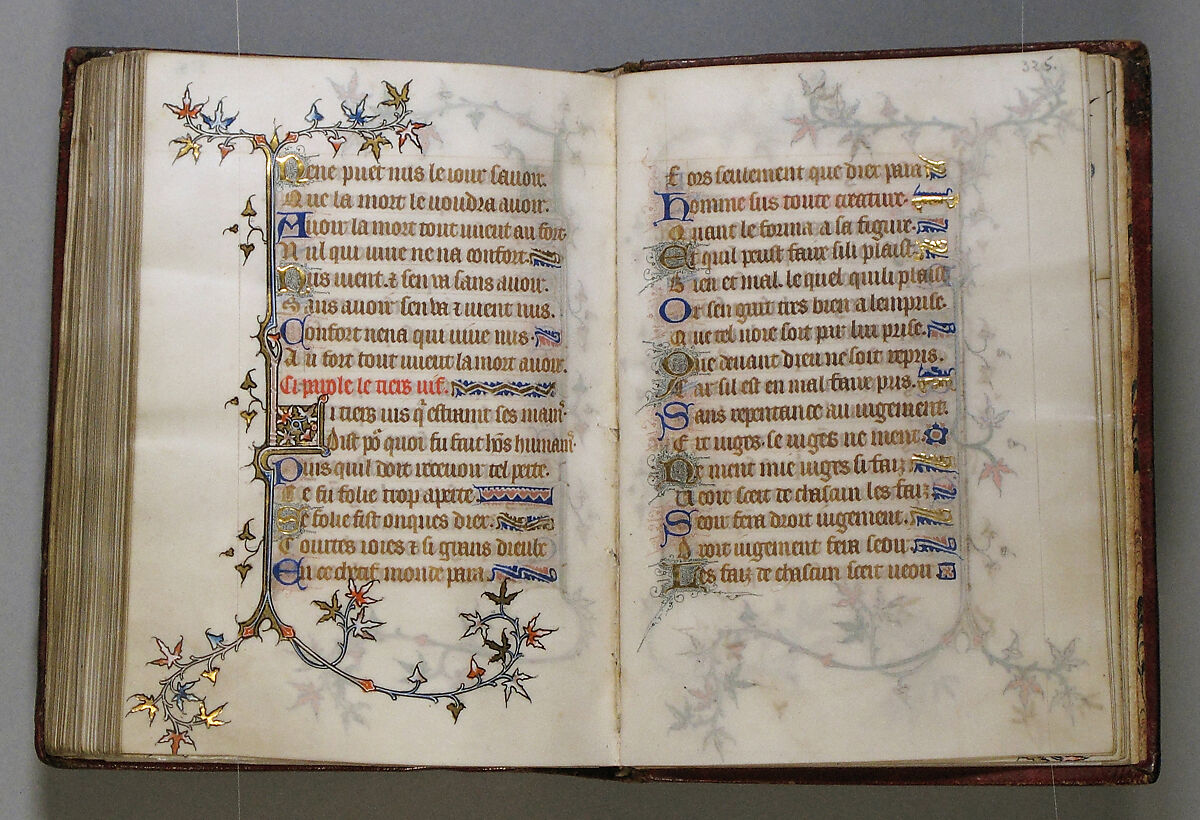 Nene puet nus le iour sauoir.
Que la mort le uoudra auoir.
Auoir la mort tout uient au fort
Nul qui uiue ne na confort.
Nus uient & sen va sans auoir.
Sans auoir sen va & uient nus.
Confort nena qui uiue nus.
Au fort tout uient la mort auoir.
Ci parole le tiers uif.
Li tiers uis q̄ estraint ses mains
Dist po² quoi fu fait hōs humains
Puis quil doit receuoir tel perte.
Ce fu folie trop aperte.
Se folie fist onques diex.
Courtes ioies & si grans diex
En ce chetif monde para
325.
Fors seulement que diex para
Homme sus toute creature.
Quant le forma a sa figure.
Et quil peust faire sili plaist
Bien et mal. le quel quili plaist
Or sen gart tirs bien a lemprise.
Que tel uoie soit par lui prise.
Que deuant dieu ne soit repris.
Car sil est en mal faire pris.
Sans repentance au iugement.
Est iuges. se iuges ne ment.
Ne ment mie iuges si faiz
Qui de chascun les faiz
Seour fera droit iugement.
Droit iugement fera seour
Les faiz de chascun scet ueou